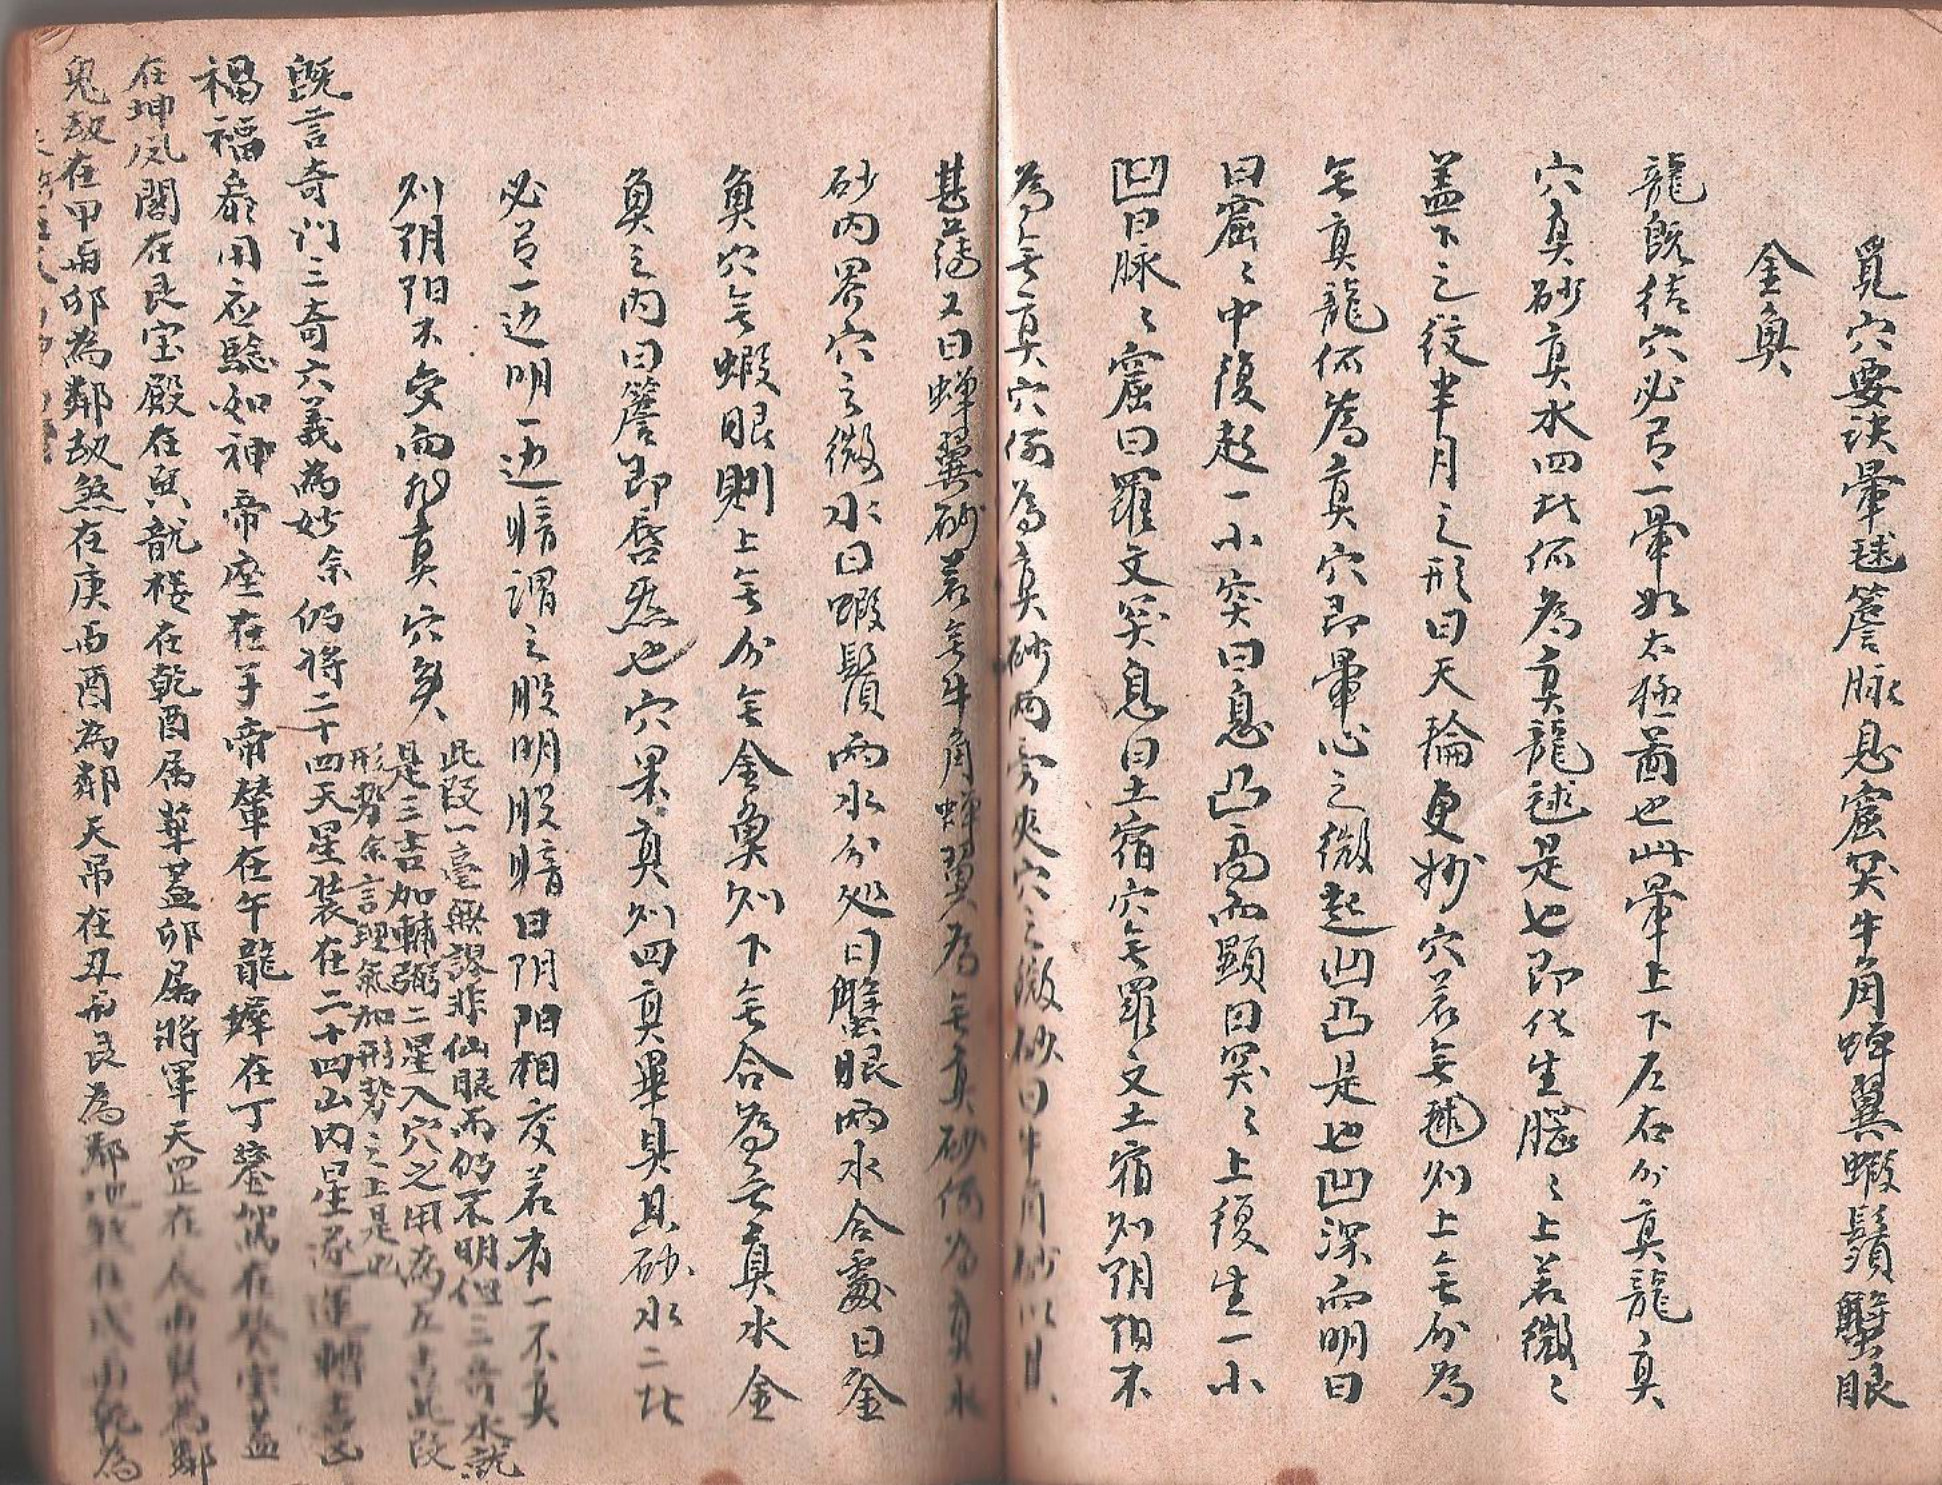 覓穴要決暈毬簷脉息窟突牛角蟬翼蝦鬚蟹眼
金魚
龍既结穴必有一暈如太極啚也此暈上下左右分真龍真
穴真砂真水四此係為真龍毬是也即化生腦〻上若微〻
盖下之紋半月之形曰天輪更妙穴若無毬则上無分為
無真龍何為真穴即暈心之微起凹凸是也凹深而明曰
曰窟〻中復起一小突曰息凸高而顕曰突〻上復生一小
凹曰脉〻窟曰羅文突息曰土宿穴無羅文土宿则阴阳不
為無真穴何為真砂两旁夾穴之微砂曰牛角砂
又曰蟬翼砂若無牛角蟬翼為無真砂何為真水
砂内界穴之微水曰蝦鬚两水分处曰蟹眼两水合處曰金
魚穴無蝦眼則上無分無金魚则下無合為無真水金
魚之内曰簷即唇毡也穴果真则四真畢具其砂水二比
必有一边明一边暗謂之股明股暗曰阴阳相交若有一不真
则阴阳不交而非真穴矣
此段一毫無謬非仙眼而仍不明但三奇水就
是三吉加輔弼二星入穴之用為五吉此段
形势余言理氣加形势之上是也
既言奇门三奇六義為妙余仍将二十四天星装在二十四山内星遂運轉吉凶
禍福用应驗如神帝座在子帝輦在午龍墀在丁鑾駕在癸宝盖
在坤凤閣在艮宝殿在巽龍楼在乾酉属華盖卯属將軍天罡在
鬼劫在甲雨卯為鄰劫煞在庚雨酉為鄰天吊在丑雨艮為鄰